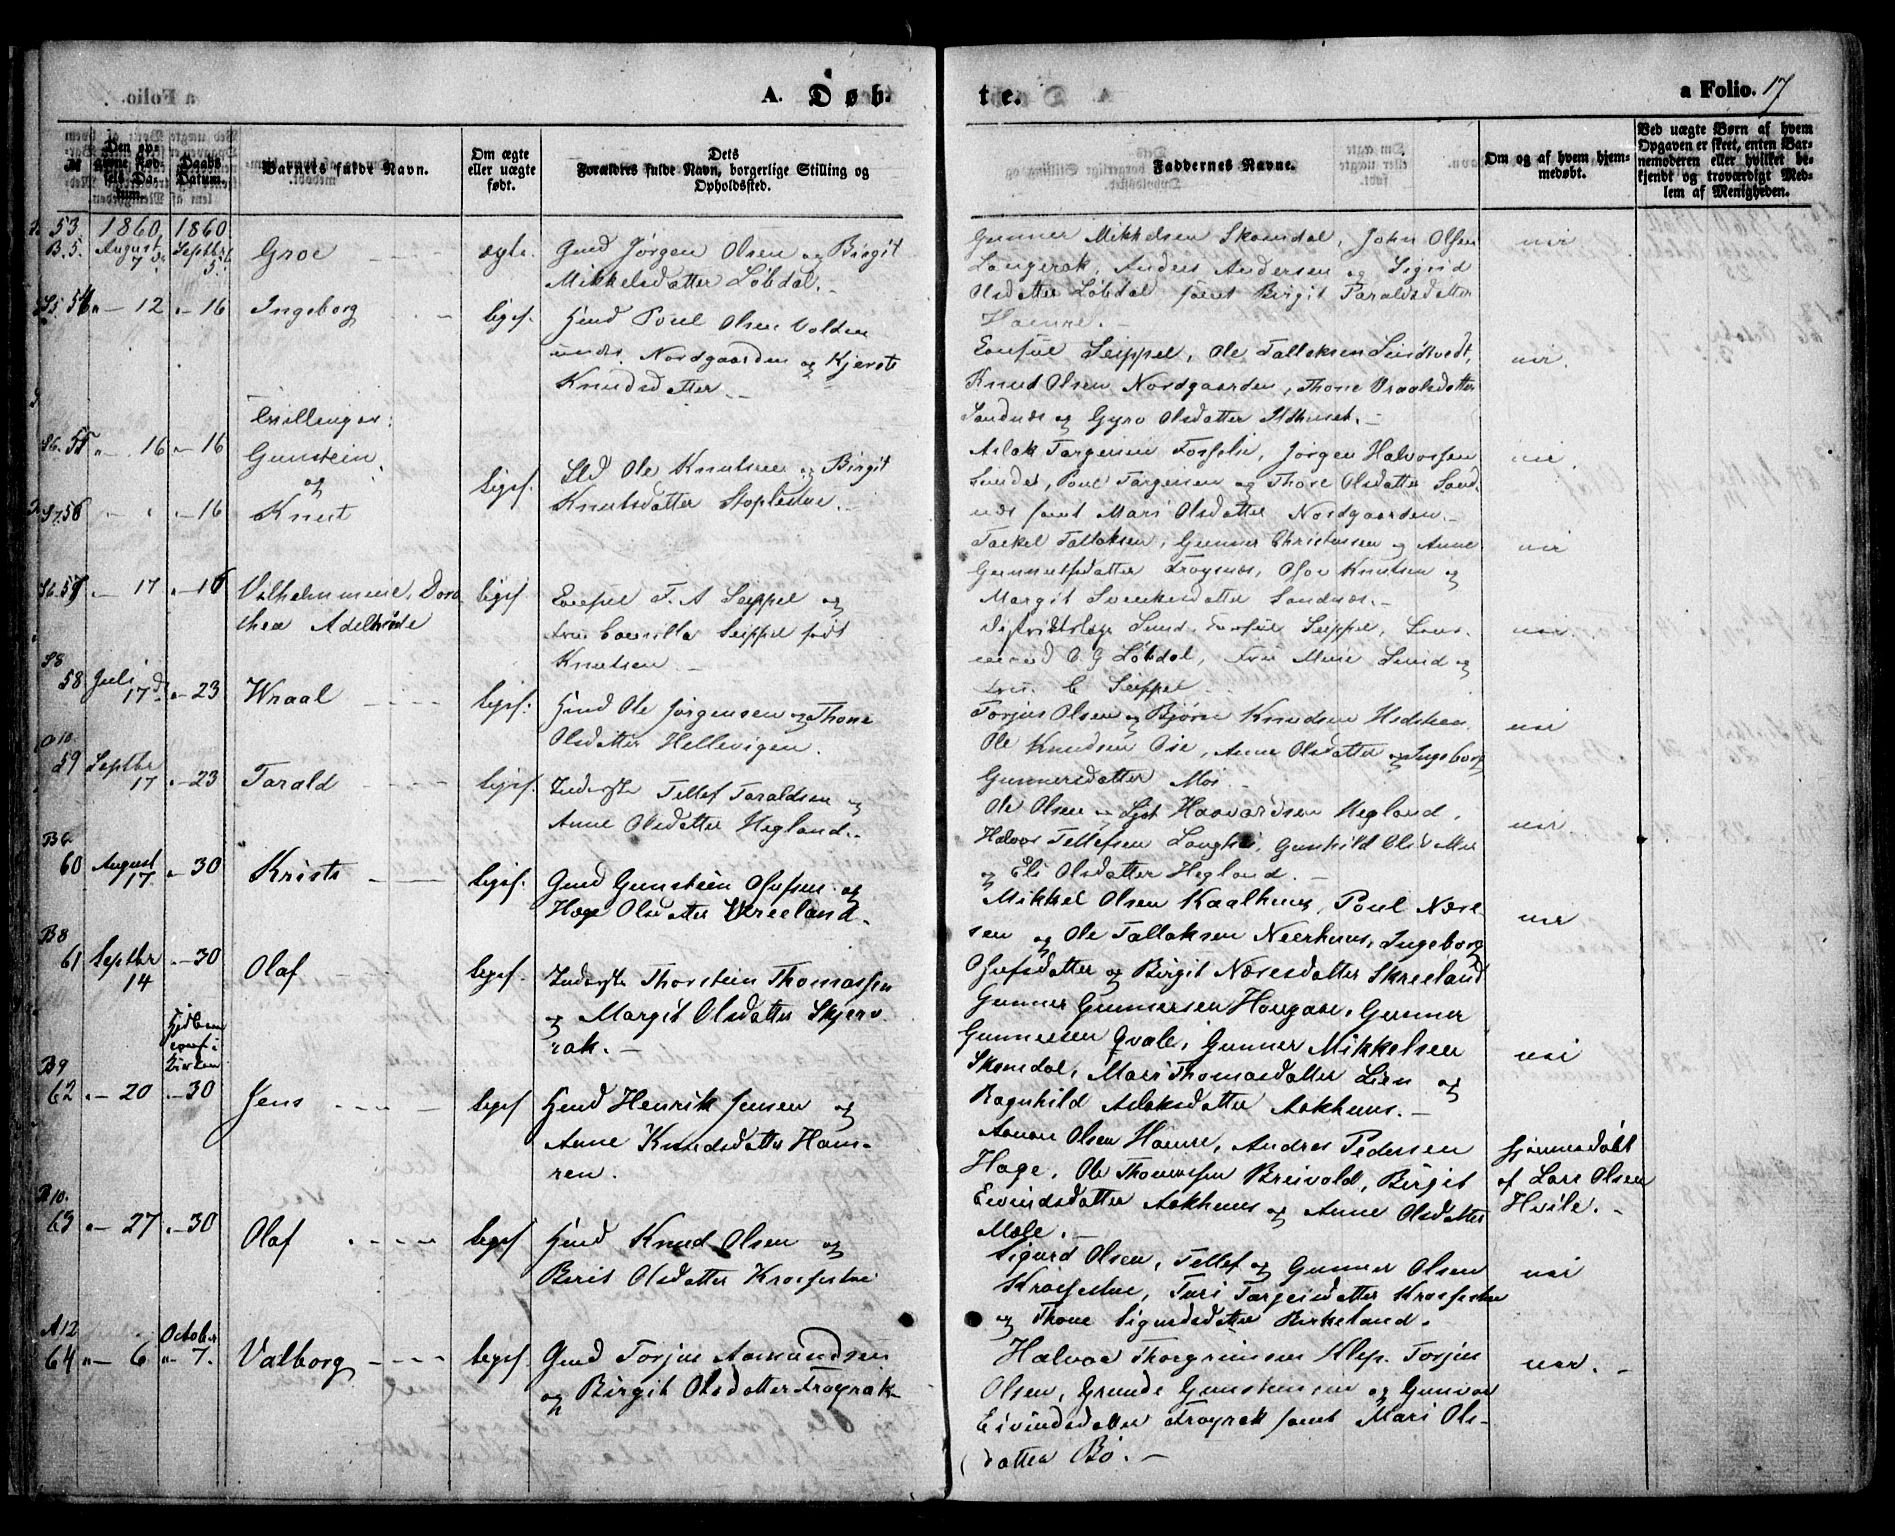 A. Døb.
te.
a Folio. 17
№
Den opgivne Fødsels Datum.
Daabs Datum.
Barnets fulde Navn.
Om ægte eller uægte født.
Dets Forældres fulde Navn, borgerlige Stilling og Opholdssted.
Faddernes Navne.
Om og af hvem hjemmedøbt.
Ved uægte Børn af hvem Opgaven er skeet, enten Barnemoderen eller hvilket bekjendt og troværdigt Medlem af Menigheden.
53. 1860. 1860.
B.5. August 7 Septbr 5
Groe
ægte.
Gmd Jørgen Olsen og Birgit
Mikkelsdatter Løbdal.
Gunner Mikkelsen Skomdal, John Olsen
Langerak, Anders Andersen og Sigrid
Olsdatter Løbdal samt Birgit Taraldsdatter
Homme.
nei
54 - 12 - 16
Ingeborg
liges.
Hmd Poul Olsen Volden
under Nordgaarden og Kjersti
Knudsdatter
Ole Tallaksen
Knud Olsen Nordgaarden, Thone Vraalsdatter
Sandnæs og Gyro Olsdatter Ildhuset.
nei.
Tvillinger:
55 - 16 - 16
Gunstein
og
56 - - 16
Knut
ligesf.
Sld Ole Knutsen og Birgit
Knutsdatter Stoplestue.
Aslak Targeisen Fosselie, Jørgen Halvorsen
Sundet, Poul Targeisen og Thone Olsdatter Sand-
næs samt Mari Olsdatter Nordgaarden.
nei.
Tarkel Tallaksen, Gunner Christensen og Anne
Gunnulfsdatter Frøysnæs, Olav Knutsen og
Margit Sveinkesdatter Sandnæs.
nei
57 - 17 - 16
Vilhelmmine Doro
thea Adelheide
ligesf.
F. A Seippel og
Fru Camilla Seippel født
Knutsen
Distriktslæge Smid, Seippel, Lens-
mand O. G Løbdal, Fru Smid og
Fru C Seippel
nei.
S8
58 Juli 17 - 23
Wraal
ligesf.
Hmd Ole Jørgensen og Thone
Olsdatter Hellevigen.
Torjus Olsen og Bjørn Knudsen
Ole Knudsen Ose, Anne Olsdatter og Ingeborg
Gunnersdatter Moe
nei
O10
59 Septbr 17 - 23
Tarald
ligesf.
Inderste Tellef Taraldsen og
Anne Olsdatter Hegland.
Ole Olsen Haavardsen Hegland,
Halvor Tellefsen Gunhild
og Eli Olsdatter Hegland.
nei.
B6
60 August 17. - 30
Kristi
ligesf.
Gmd Gunstein Olufsen og
Hæge Olsdatter Skreeland.
Mikkel Olsen Kaalhuus, Poul Næve-
sen og Ole Tallaksen Neerhuus, Ingeborg
Olufsdatter og Birgit Nævesdatter Skreeland
nei
B8
61 Septbr 14 - 30
Olaf
ligesf.
Inderste Thorstein Thomassen
og Margit Olsdatter Skjerv
rak.
Gunner Gunnersen Haugaae, Gunner
Gunnersen Qvale, Gunner Mikkelsen
Skomdal, Mari Thomasdatter Lien og
Ragnhild Aslaksdatter Aakhuus.
nei
B9
62 - 20 - 30
Jens
ligesf
Hmd Henrik Jensen og
Anne Knudsdatter Ham-
ren.
Aanon Olsen Hamre, Andres Pedersen
Hage, Ole Thomassen Breivold, Birgit
Eivindsdatter Aakhuus og Anne Olsdatter
Mole.
hjemmedøbt
af Lars Olsen
Hvile.
B10.
63 - 27 - 30
Olaf
ligesf
Hmd Knud Olsen og
Berit Olsdatter
Sigurd Olsen, Tellef og Gunner Olsen
Tari Targeisdatter
og Thone Sigurdsdatter Birkeland.
nei
A12
64 - 6 October 7.
Valborg
ligesf.
Gmd Torjus Aamundsen
og Birgit Olsdatter Frøyrak
Halvor Thorgrimsen Klep, Torjus
Olsen, Grunde Gunstensen og Gunvor
Eivindsdatter Frøyrak samt Mari Ols-
datter Bø.
nei.